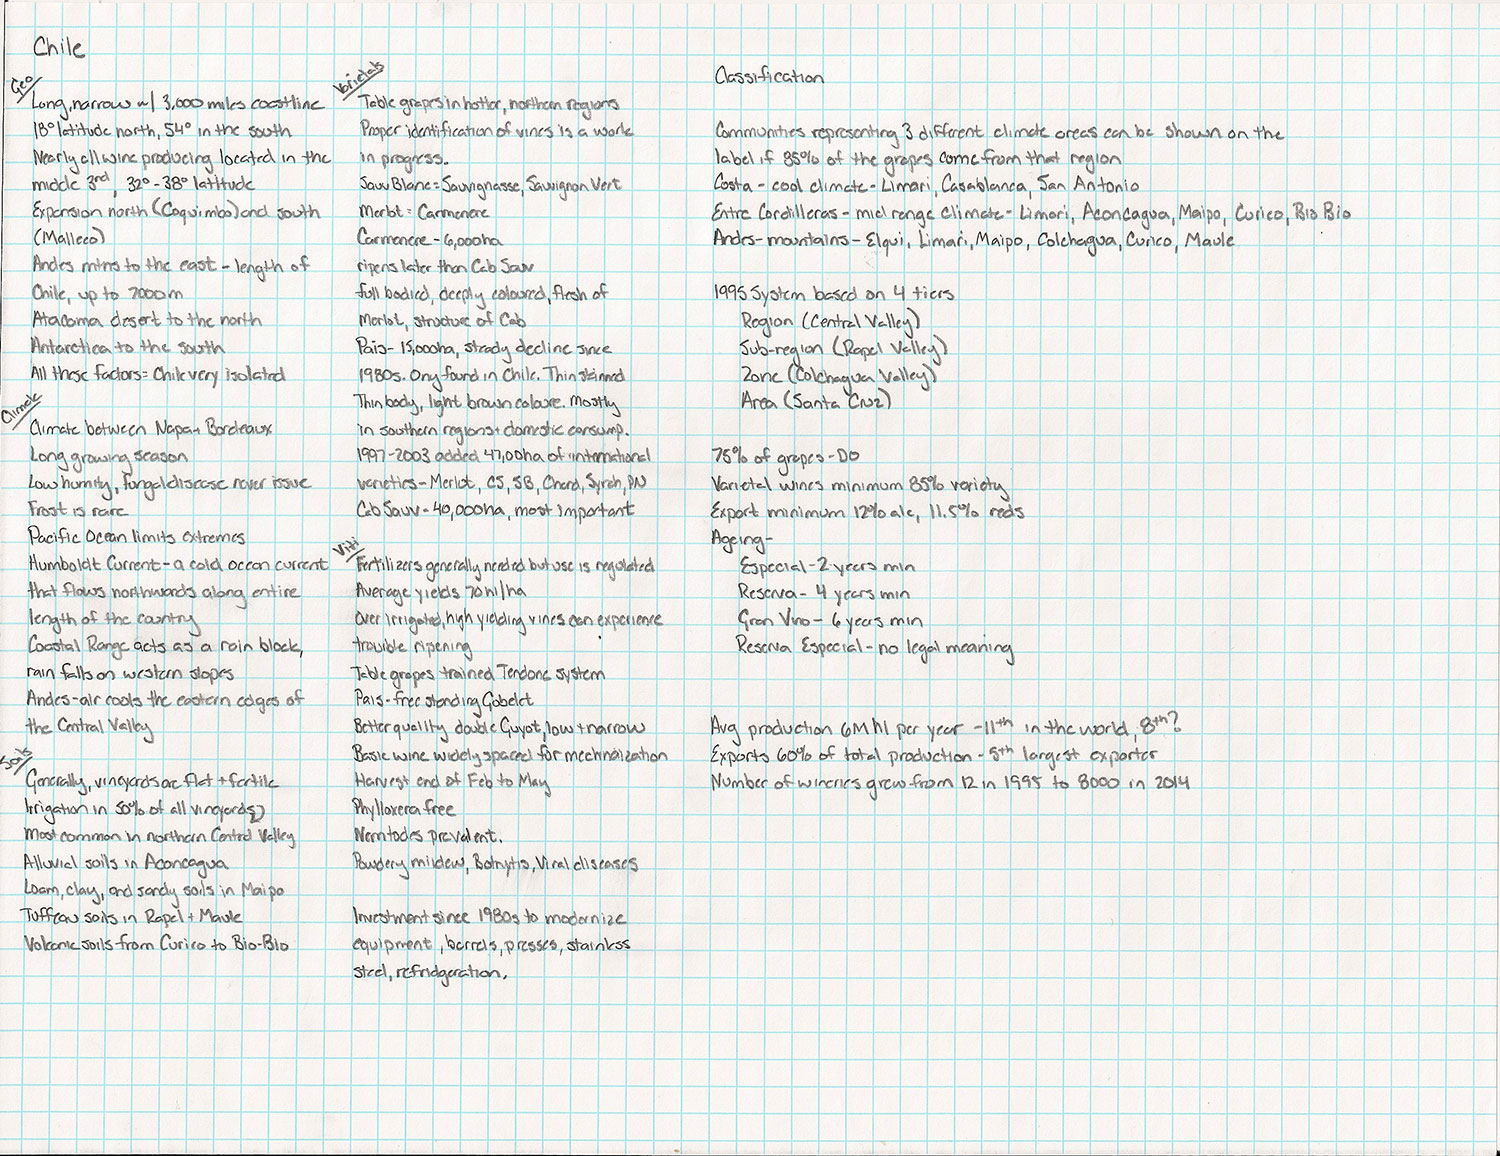 Chile
Geo
Long, narrow w/ 3,000 miles coastline
18° latitude north, 54° in the south
Nearly all wine producing located in the
middle 3rd, 32°-38° latitude
Expansion north (Coquimbo) and south
(Malleco)
Andes mtns to the east - length of
Chile, up to 7000m
Atacama desert to the north
Antarctica to the south
All these factors = Chile very isolated
Climate
Climate between Napa + Bordeaux
Long growing season
Low humity, fungal disease never issue
Frost is rare
Pacific Ocean limits extremes
Humboldt Current - a cold ocean current
that flows northwards along entire
length of the country
Coastal Range acts as a rain block,
rain falls on western slopes
Andes-air cools the eastern edges of
the Central Valley
Soils
Generally, vineyards are flat + fertile
Irrigation in 50% of all vineyards
most common in northern Central Valley
Alluvial soils in Aconcagua
Loam, clay, and sandy soils in Maipo
Tuffeau soils in Rapel + Maule
Volcanic soils from Curico to Bio-Bio
Varietals
Table grapes in hotter, northern regions
Proper identification of vines is a work
in progress.
Sauv Blanc = Sauvignasse, Sauvignon Vert
Merlot = Carmenere
Carmenere - 6,000ha
ripens later than Cab Sauv
full bodied, deeply coloured, flesh of
Merlot, structure of Cab
Pais - 15,000ha, steady decline since
1980s. Ony found in Chile. Thin skinned
Thin body, light brown coloure. Mostly
in southern regions + domestic consump.
1997-2003 added 47,00ha of international
varieties - Merlot, CS, SB, Chard, Syrah, PN
Cab Sauv - 40,000ha, most important
Viti
Fertilizers generally needed but use is regulated
Average yields 70hl/ha
Over irrigated, high yielding vines can experience
trouble ripening
Table grapes trained Tendone system
Pais - free standing Gobelet
Better quality double Guyot, low + narrow
Basic wine widely spaced for mechnaization
Harvest end of Feb to May
Phylloxera free
Nemtodes prevalent.
Powdery mildew, Botrytis, Viral diseases
Investment since 1980s to modernize
equipment, barrels, presses, stainless
steel, refridgeration.
Classification
Communities representing 3 different climate areas can be shown on the
label if 85% of the grapes come from that region
Costa - cool climate - Limari, Casablanca, San Antonio
Entre Cordilleras - mid range climate - Limari, Aconcagua, Maipo, Curico, Bio Bio
Andes - mountains - Elqui, Limari, Maipo, Colchagua, Curico, Maule
1995 System based on 4 tiers
Region (Central Valley)
Sub-region (Rapel Valley)
Zone (Colchagua Valley)
Area (Santa Cruz)
75% of grapes - DO
Varietal wines minimum 85% variety
Export minimum 12% alc, 11.5% reds
Ageing -
Especial - 2 years min
Reserva - 4 years min
Gran Vino - 6 years min
Reserva Especial - no legal meaning
Avg production 6M hl per year - 11th in the world, 8th?
Exports 60% of total production - 5th largest exporter
Number of wineries grew from 12 in 1995 to 8000 in 2014